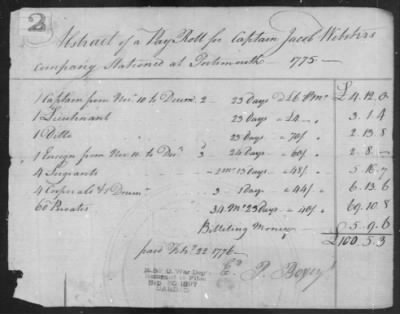 2
Abstract of a Pay Roll for Captain Jacob Webster's
Company Stationed at Portsmouth — 1775 —
1 Captain from Nov. 10 to Decem. 2 23 Days @ £6 £4. 12. 0
1 Lieutenant 23 Days @ £4 3. 1. 4
1 Ditto 23 Days 70/ 2. 13. 8
1 Ensign from Nov. 10 to 3 24 Days 60/ 2. 8. —
4 Sergeants 48/ 5. 16. 7
4 Corporals & 1 Drum 44/ 6. 13. 6
60 Privates 34 Ms 23 Days 40/ 69. 10. 8
Billeting Money 5. 9. 6
£100. 5. 3
paid Feb. 22 1776
R. & P. O. War Dep.
1897
CARDED